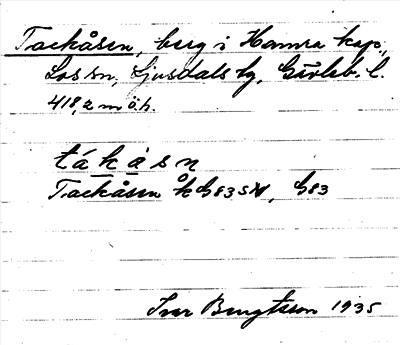 Tackåsen, berg i Hamra kap.,
Los sn, Ljusdals tg, Gävleb. l.
418,2 m ö.h.
tákåsn
Tackåsen Åk G83SV, G83
Ivar Bengtsson 1935